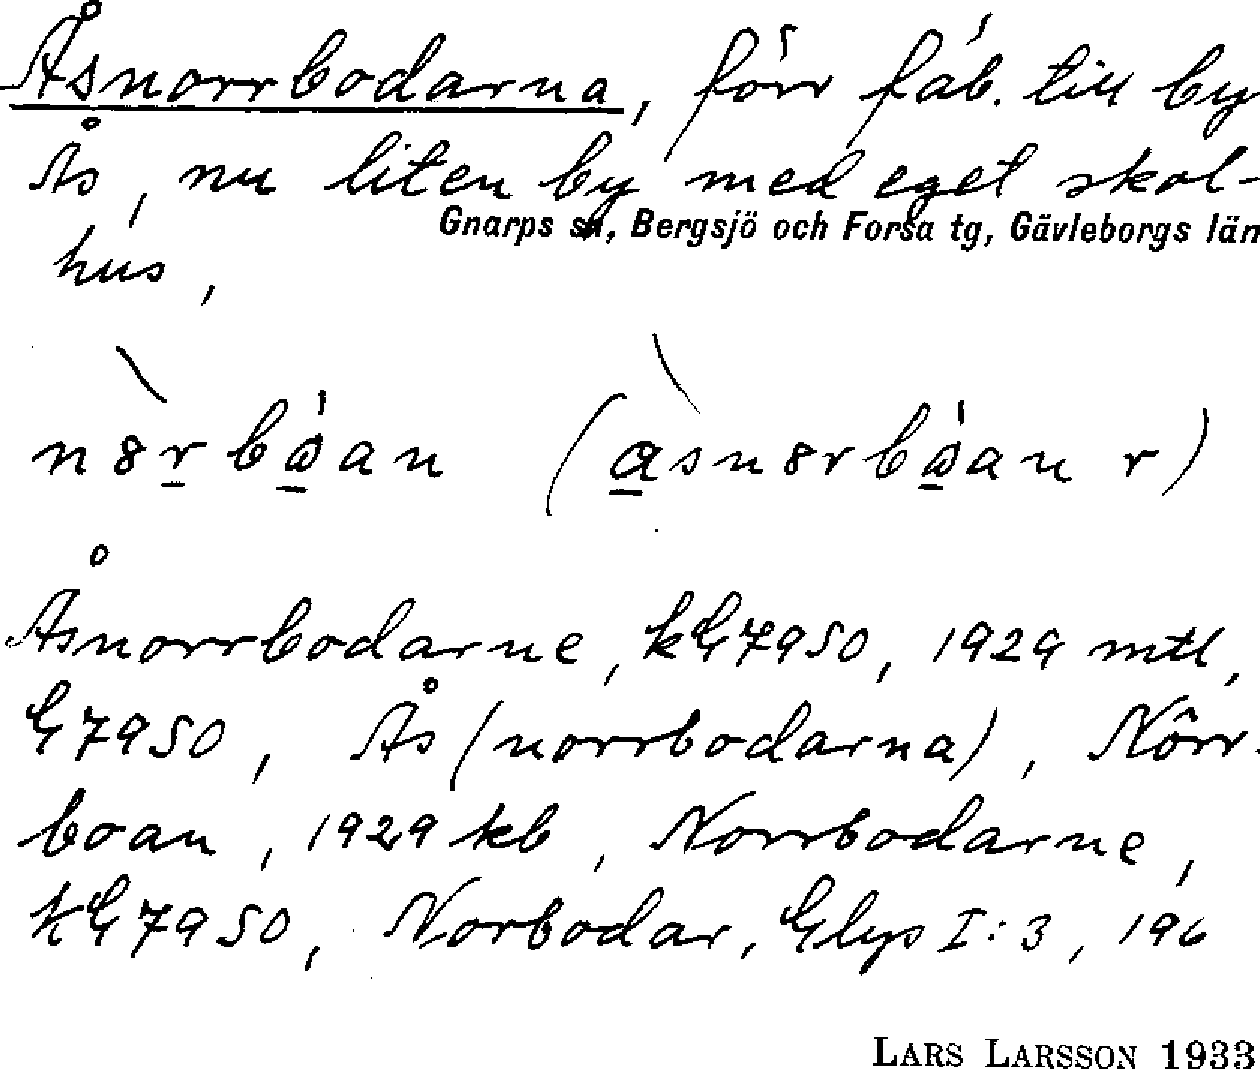 Åsnorrbodarna, förr fäb. till by
Ås, nu liten by med eget skol-
Gnarps sn, Bergsjö och Forsa tg, Gävleborgs län
hus,
Åsnorrbodarne, kG7950, 1929 mtl,
G7950, Ås (norrbodarna), Nôrr-
boan, 1929 kb, Norrbodarne,
kG7950, Norbodar, Glys I:3, 196
LARS LARSSON 1933